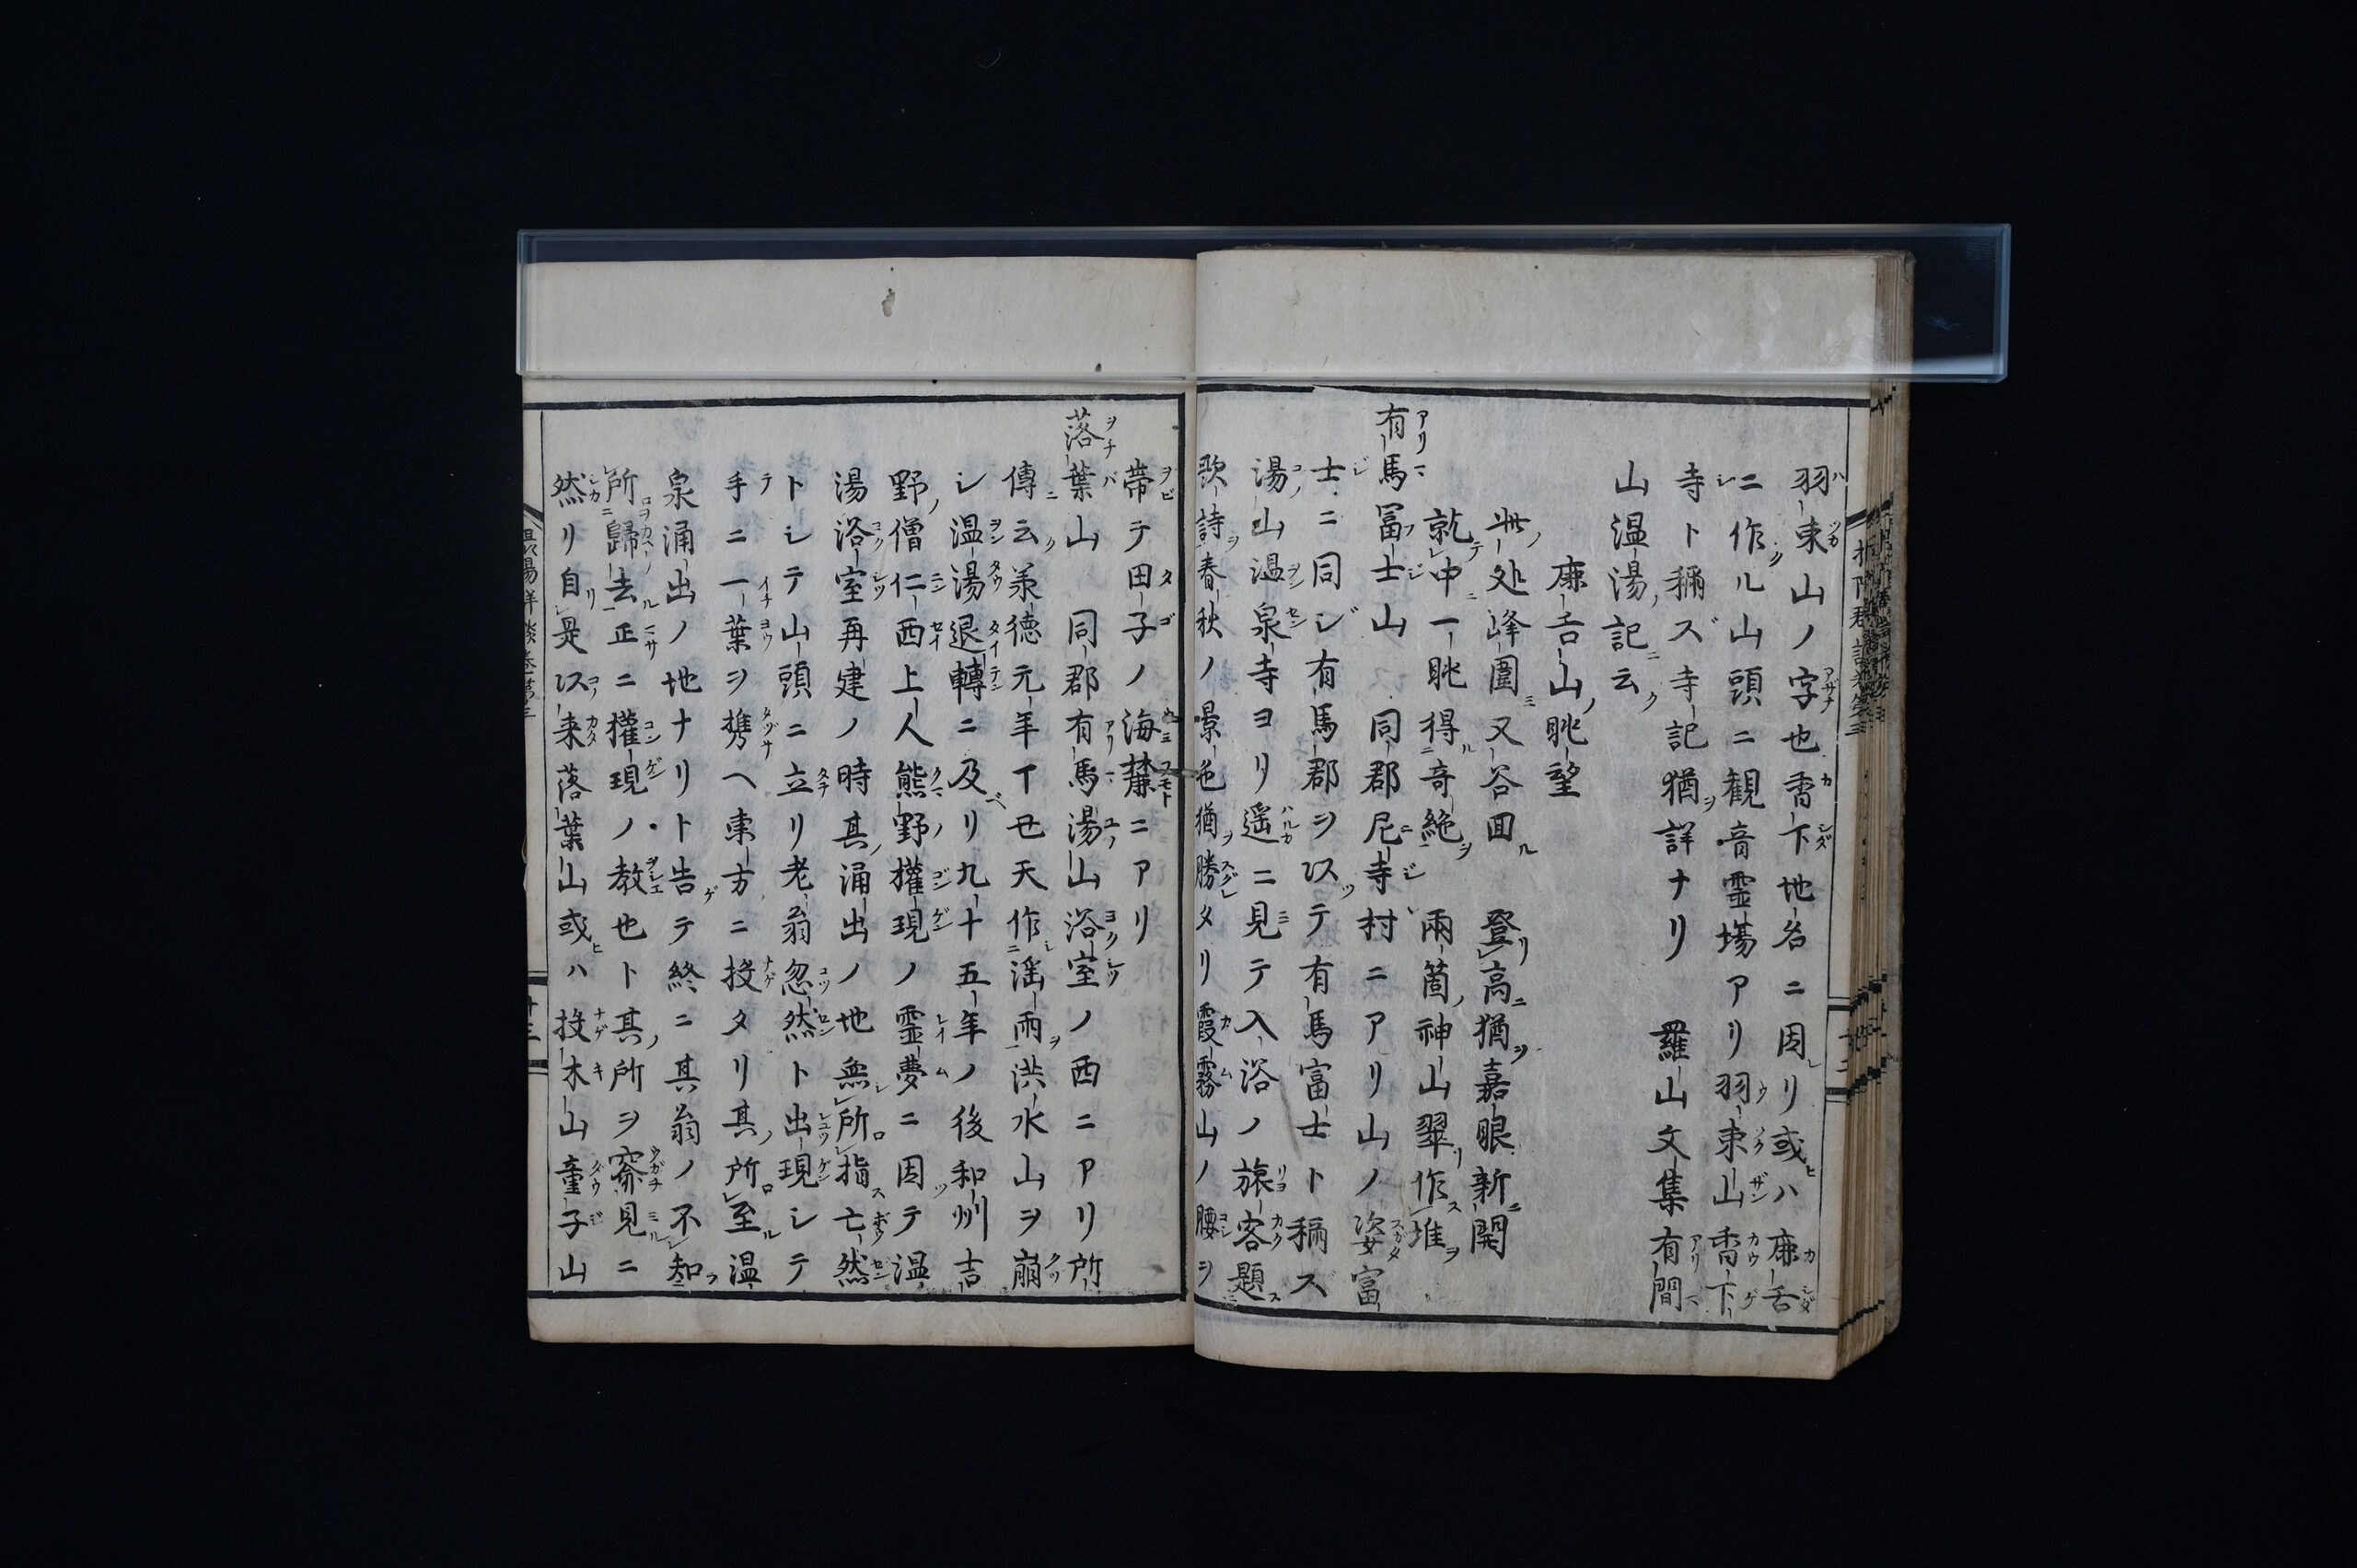 羽束山ノ字也香下地名ニ因リ或ハ鹿舌
ニ作ル山頭ニ観音霊場アリ羽束山香下
寺ト稱ズ寺記猶詳ナリ　羅山文集有間
山温湯記云
鹿舌山眺望
此処峰圍又谷回　登高猶嘉眼新開
就中一眺得奇絶　兩箇神山翠作堆
有馬冨士山　同郡尼寺村ニアリ山ノ姿富
士ニ同ジ有馬郡ヲ以テ有馬富士ト稱ズ
湯山温泉寺ヨリ遥ニ見テ入浴ノ旅客題
歌詩春秋ノ景色猶勝タリ霞霧山ノ腰ヲ
帯テ田子ノ海麓ニアリ
落葉山　同郡有馬湯山浴室ノ西ニアリ所
傳云承徳元年丁丑天作淫雨洪水山ヲ崩
シ温湯退轉ニ及リ九十五年ノ後和州吉
野僧仁西上人熊野權現ノ霊夢ニ因テ温
湯浴室再建ノ時其涌出ノ地無所指亡然
トシテ山頭ニ立リ老翁忽然ト出現シテ
手ニ一葉ヲ携ヘ東方ニ投タリ其所至温
泉涌出ノ地ナリト告テ終ニ其翁ノ不知
所歸去正ニ權現ノ教也ト其所ヲ窺見ニ
然リ自是以来落葉山或ハ投木山童子山